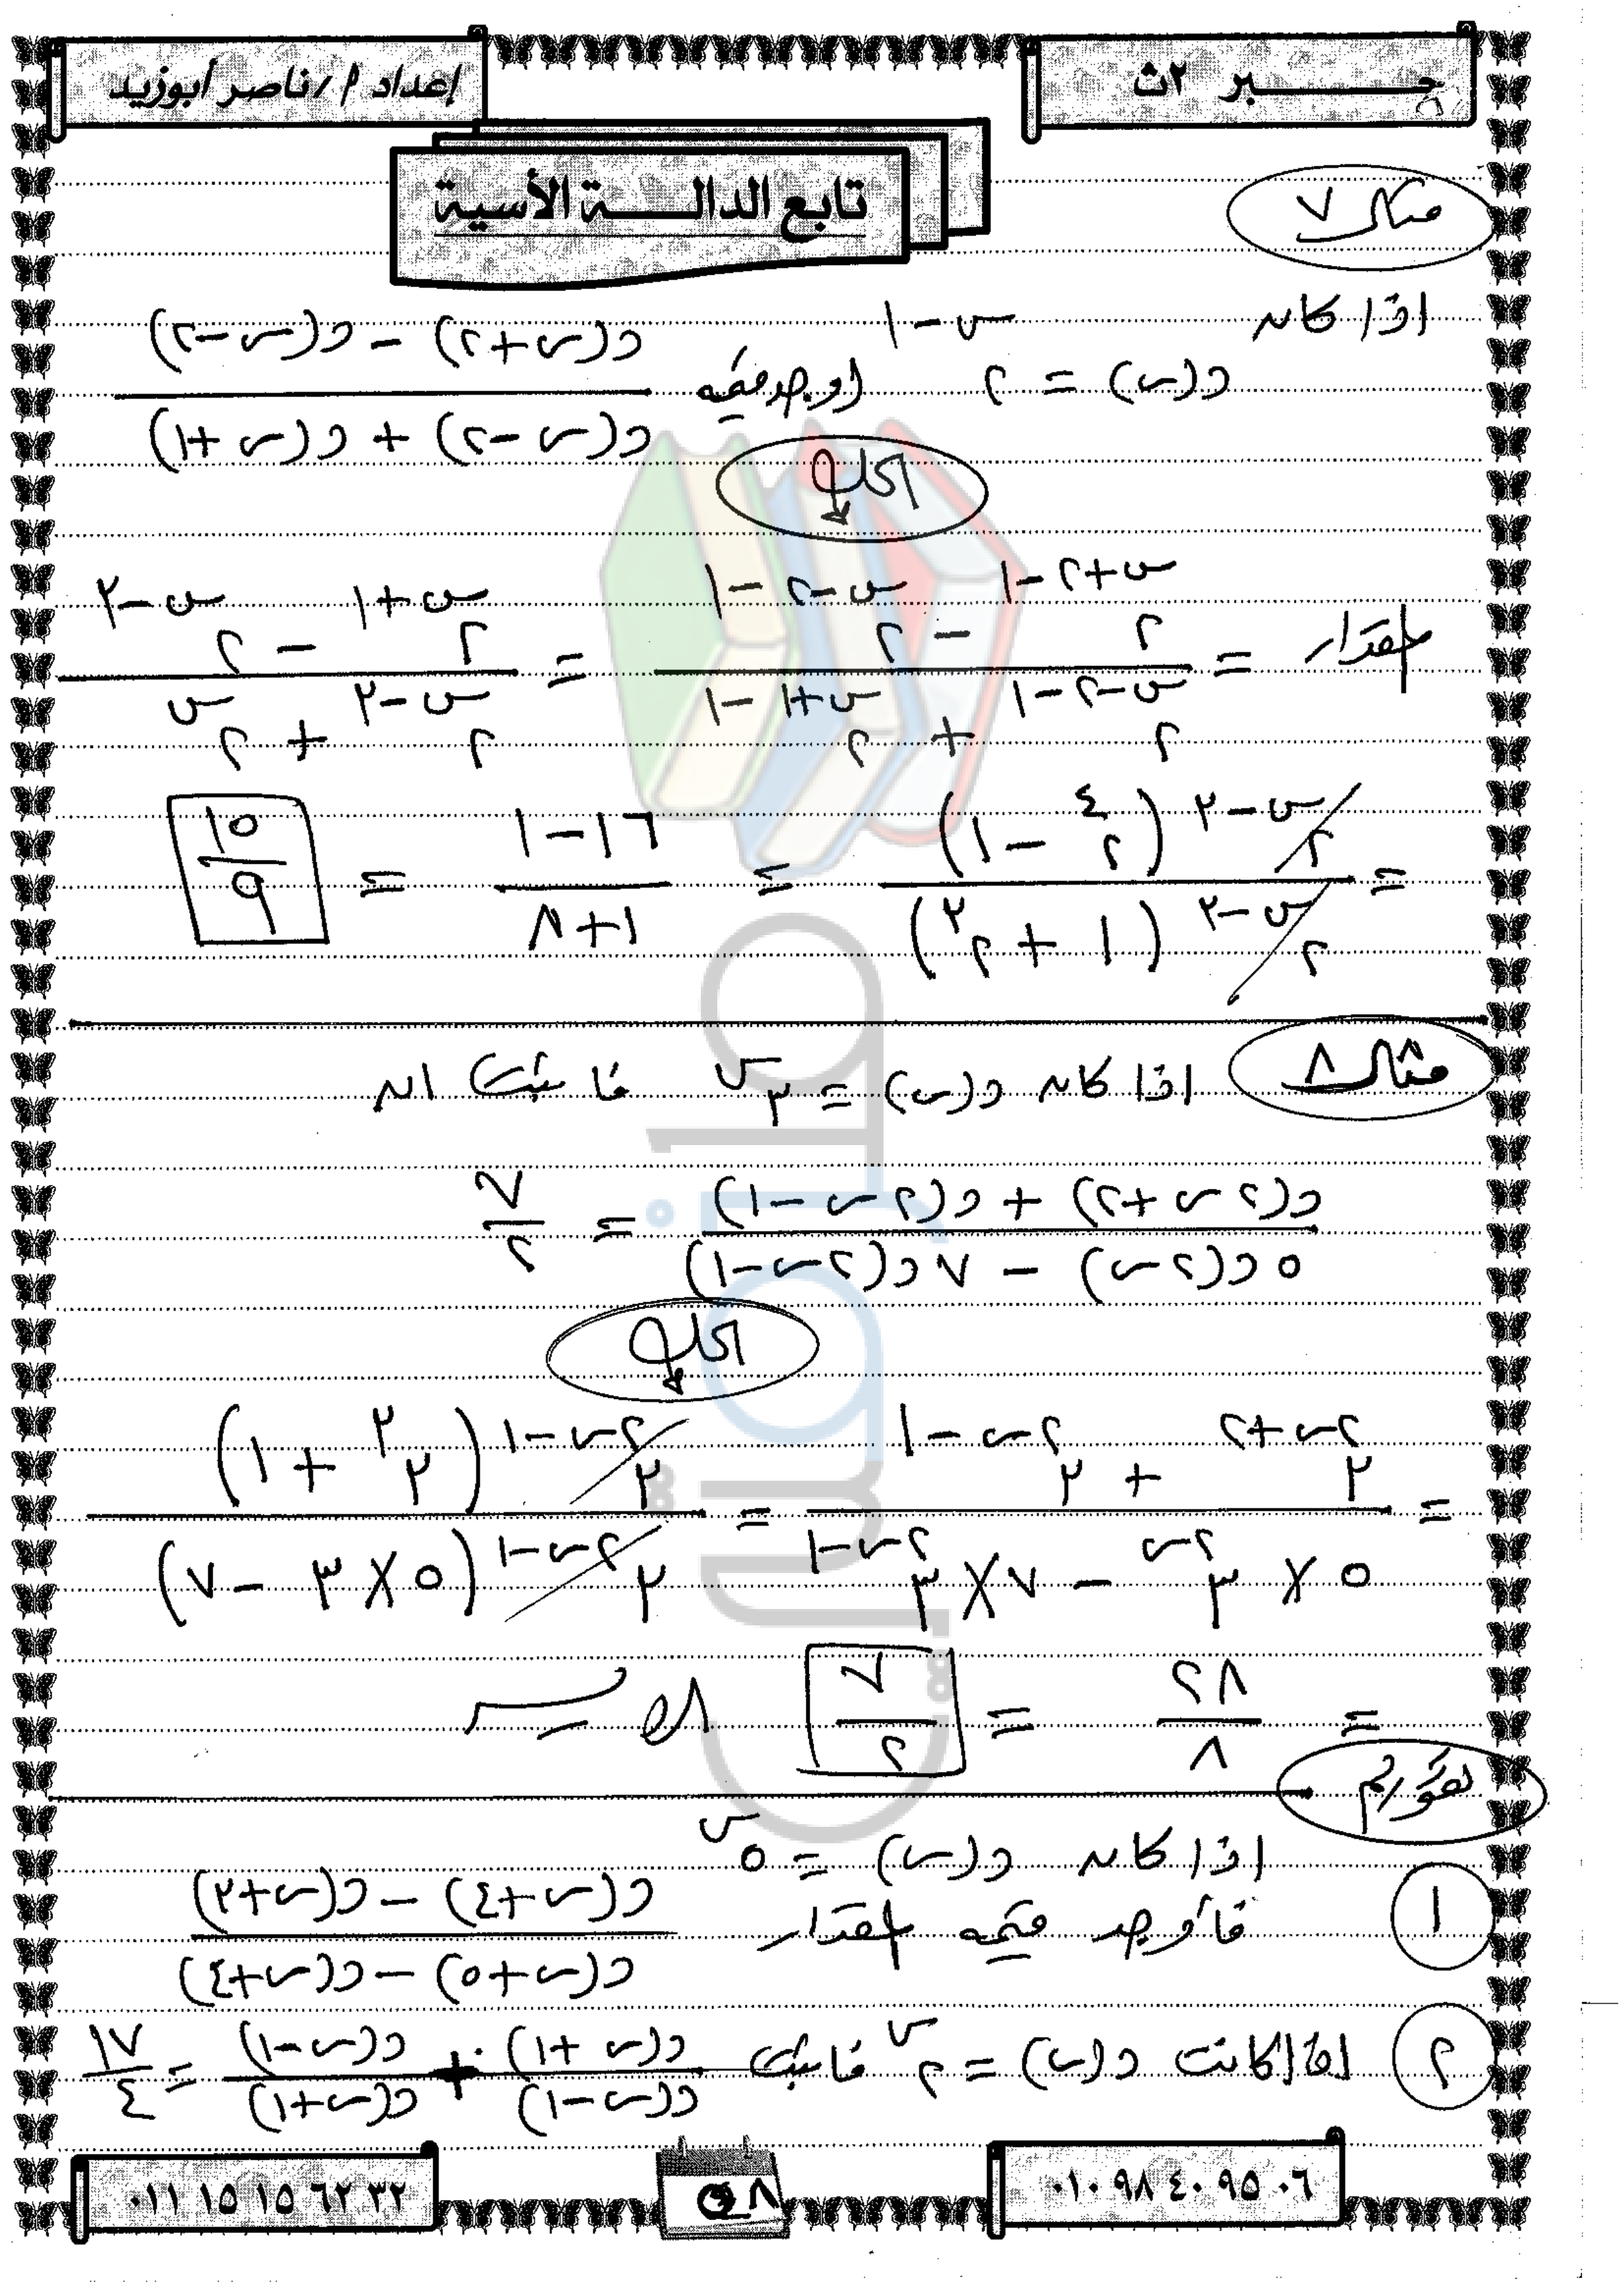 جبر ٢ث
إعداد أ/ ناصر أبوزيد
تابع الدالة الأسية
مثال ٧
اذا كان د(س) = ٢^(س-١) اوجد قيمة (د(س+٢) - د(س-٢)) / (د(س-٢) + د(س+١))
الحل
المقدار = (٢^(س+٢-١) - ٢^(س-٢-١)) / (٢^(س-٢-١) + ٢^(س+١-١)) = (٢^(س+١) - ٢^(س-٣)) / (٢^(س-٣) + ٢^س)
= ٢^(س-٣) (٢^٤ - ١) / ٢^(س-٣) (١ + ٢^٣) = (١٦-١) / (١+٨) = ١٥/٩
مثال ٨ اذا كان د(س) = ٣^س فاثبت ان
(د(٢س+٢) + د(٢س-١)) / (٥د(٢س) - ٧د(٢س-١)) = ٧/٢
الحل
= (٣^(٢س+٢) + ٣^(٢س-١)) / (٥ × ٣^(٢س) - ٧ × ٣^(٢س-١)) = ٣^(٢س-١) (٣^٣ + ١) / ٣^(٢س-١) (٥ × ٣ - ٧)
= ٢٨/٨ = ٧/٢ الايسر
١ اذا كان د(س) = ٥^س
فأوجد قيمة المقدار (د(س+٤) - د(س+٣)) / (د(س+٥) - د(س+٤))
٢ اذا كانت د(س) = ٢^س فاثبت د(س+١)/د(س-١) + د(س-١)/د(س+١) = ١٧/٤
٠١٠ ٩٨ ٤٠ ٩٥ ٠٦
٠١١ ١٥ ١٥ ٦٢ ٣٢